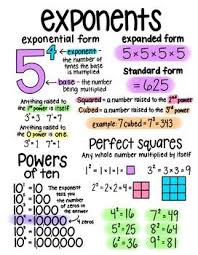 exponents
exponential form
5 4
exponent -
the number
of times the base
is multiplied
base - the number
being multiplied
expanded form
5 x 5 x 5 x 5
Standard form
= 625
Anything raised to
the 1st power is itself
3¹=3 7¹=7
Anything raised to
the 0 power is 1
3⁰=1 7⁰=1
Squared = a number raised to the 2nd power
Cubed = a number raised to the 3rd power
example: 7 cubed = 7³ = 343
Powers
of ten
10⁰ = 1
10¹ = 10
10² = 100
10³ = 1000
The exponent
tells you
the number
of zeros in the
answer
4 zeros
Perfect Squares
Any whole number multiplied by itself
1² = 1×1 = 1
3² = 3×3 = 9
2² = 2×2 = 4
4² = 16
5² = 25
6² = 36
7² = 49
8² = 64
9² = 81